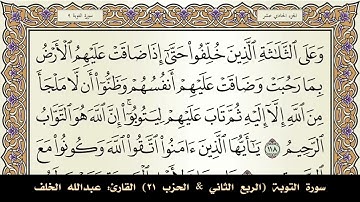 الجزء الحادي عشر
سورة التوبة ٩
وَعَلَى ٱلثَّلَٰثَةِ ٱلَّذِينَ خُلِّفُوا۟ حَتَّىٰٓ إِذَا ضَاقَتْ عَلَيْهِمُ ٱلْأَرْضُ
بِمَا رَحُبَتْ وَضَاقَتْ عَلَيْهِمْ أَنفُسُهُمْ وَظَنُّوٓا۟ أَن لَّا مَلْجَأَ
مِنَ ٱللَّهِ إِلَّآ إِلَيْهِ ثُمَّ تَابَ عَلَيْهِمْ لِيَتُوبُوٓا۟ ۚ إِنَّ ٱللَّهَ هُوَ ٱلتَّوَّابُ
ٱلرَّحِيمُ ١١٨ يَٰٓأَيُّهَا ٱلَّذِينَ ءَامَنُوا۟ ٱتَّقُوا۟ ٱللَّهَ وَكُونُوا۟ مَعَ
سورة التوبة (الربع الثاني & الحزب ٢١) القارئ: عبدالله الخلف